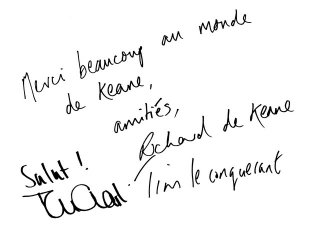 Merci beaucoup au monde
de Keane,
amitiés,
Richard de Keane
Salut !
Tim le conquerant